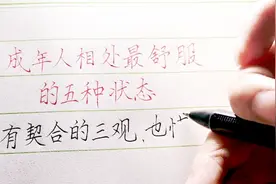 成年人相处最舒服
的五种状态
有契合的三观,也